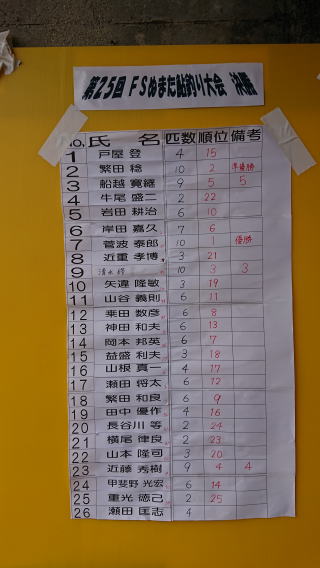 第25回 FSぬまた鮎釣り大会 決勝
no. 氏 名 匹数 順位 備考
1 戸屋 登 4 15
2 繁田 稔 10 2 準優勝
3 船越 寛羅 9 5 5
4 牛尾 盛二 2 22
5 岩田 耕治 6 10
6 岸田 嘉久 7 6
7 菅波 泰郎 10 1 優勝
8 近重 孝博 3 21
9 清水 修 10 3 3
10 矢違 隆敏 3 19
11 山谷 義則 6 11
12 乗田 数彦 6 8
13 神田 和夫 6 13
14 岡本 邦英 6 7
15 益盛 利夫 3 18
16 山根 真一 4 17
17 瀬田 将太 6 12
18 繁田 和良 6 9
19 田中 優作 4 16
20 長谷川 等 2 24
21 横尾 律良 2 23
22 山本 隆司 3 20
23 近藤 秀樹 9 4 4
24 甲斐野 光宏 6 14
25 重光 徳己 2 25
26 瀬田 匡志 4